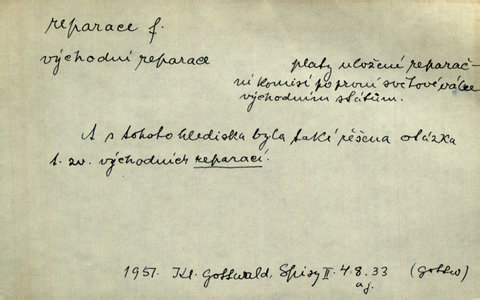 reparace f.
východní reparace
platy uložené reparač-
ní komisí po první světové válce
východním státům.
A s tohoto hlediska byla také řešena otázka
t. zv. východních reparací.
1951. Kl. Gottwald, Spisy II. 4. 8. 33 (Gottw)
aj.